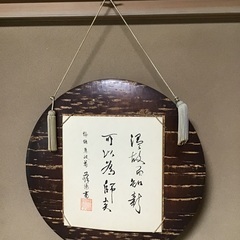 温故而知新
可以為師矣
論語為政篇